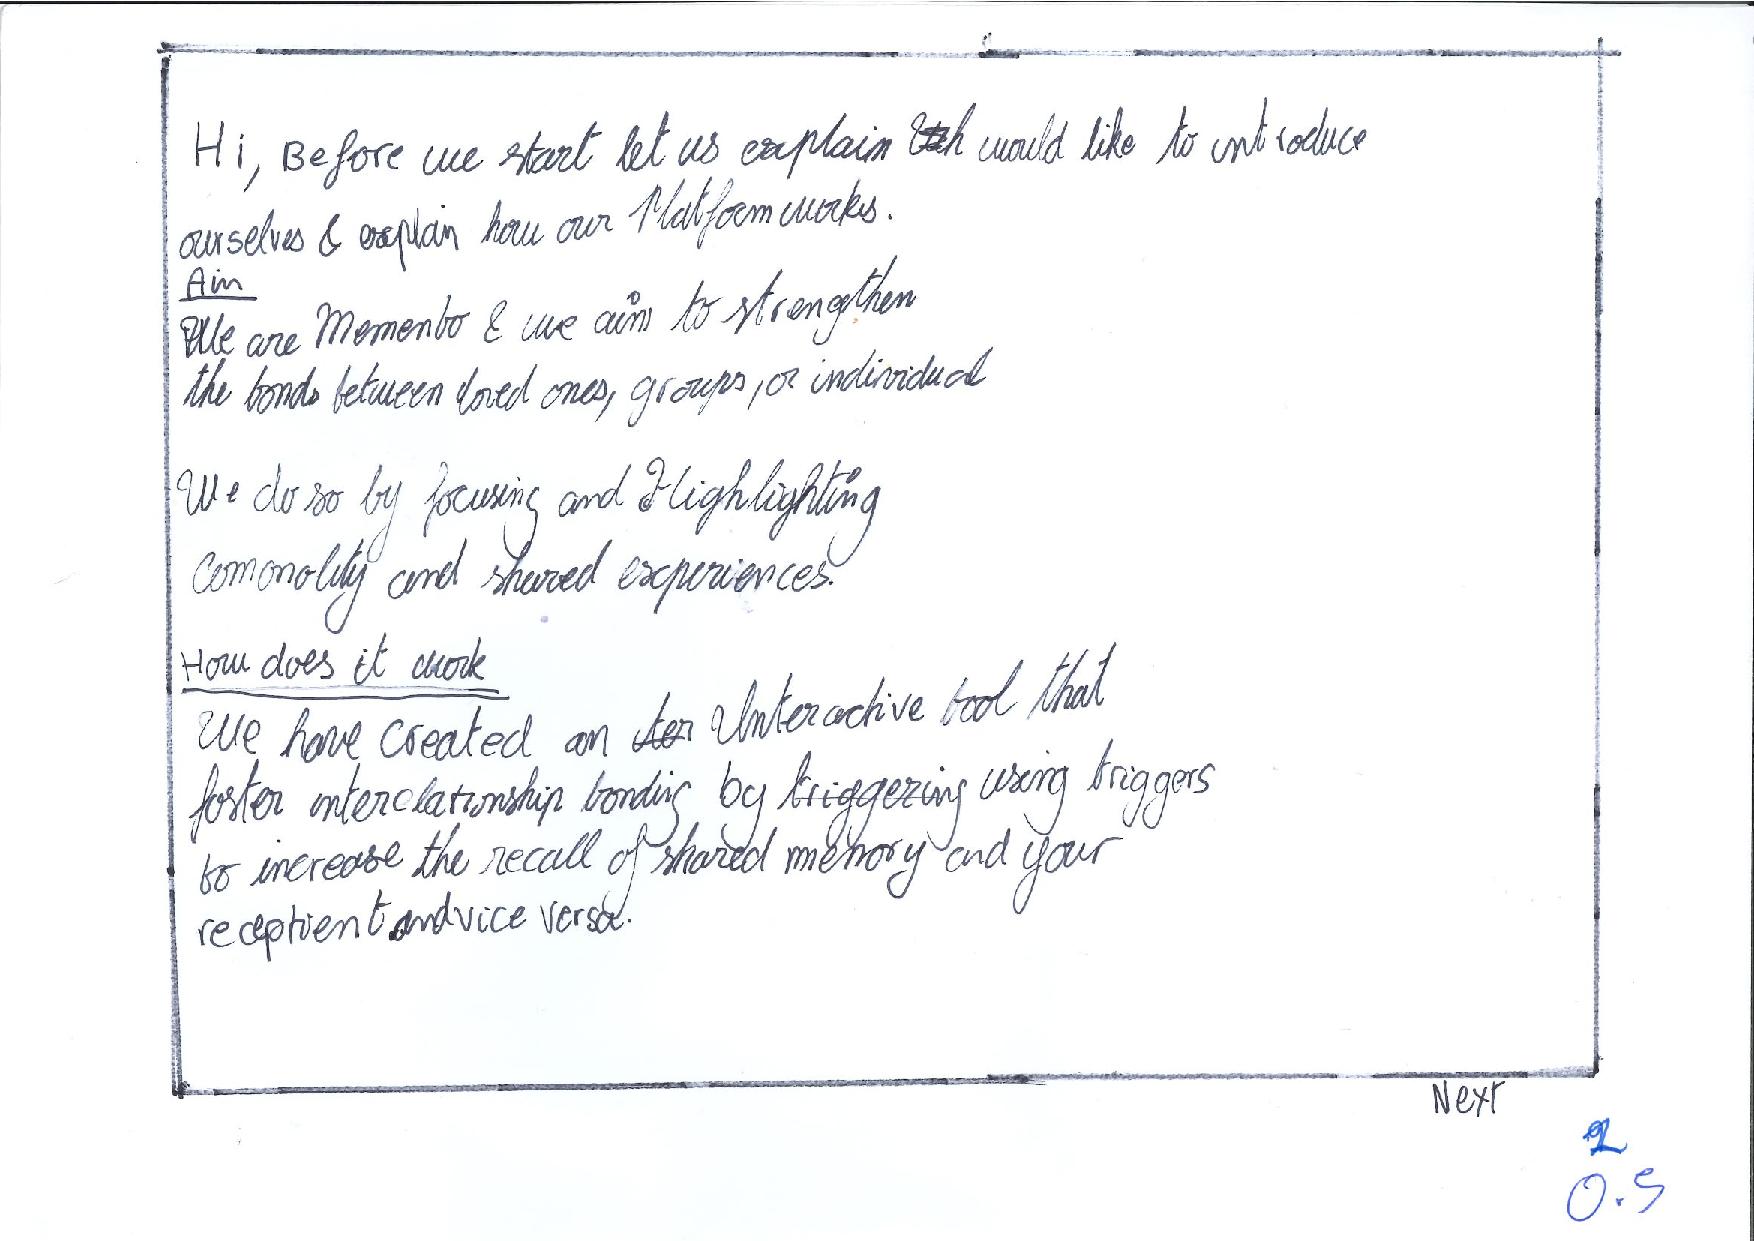 Hi, Before we start let us explain would like to introduce
ourselves & explain how our Platform works.
Aim
We are Memento & we aim to strengthen
the bonds between loved ones, groups, or individual
We do so by focusing and Highlighting
Comonality and shared experiences.
How does it work
We have created an Interactive tool that
foster interelationship bonding by triggering using triggers
to increase the recall of shared memory and your
receptient and vice versa.
Next
2
0.5